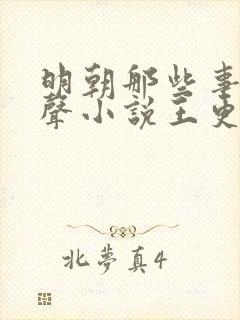 明朝那些事
聲小說王更
北夢真4